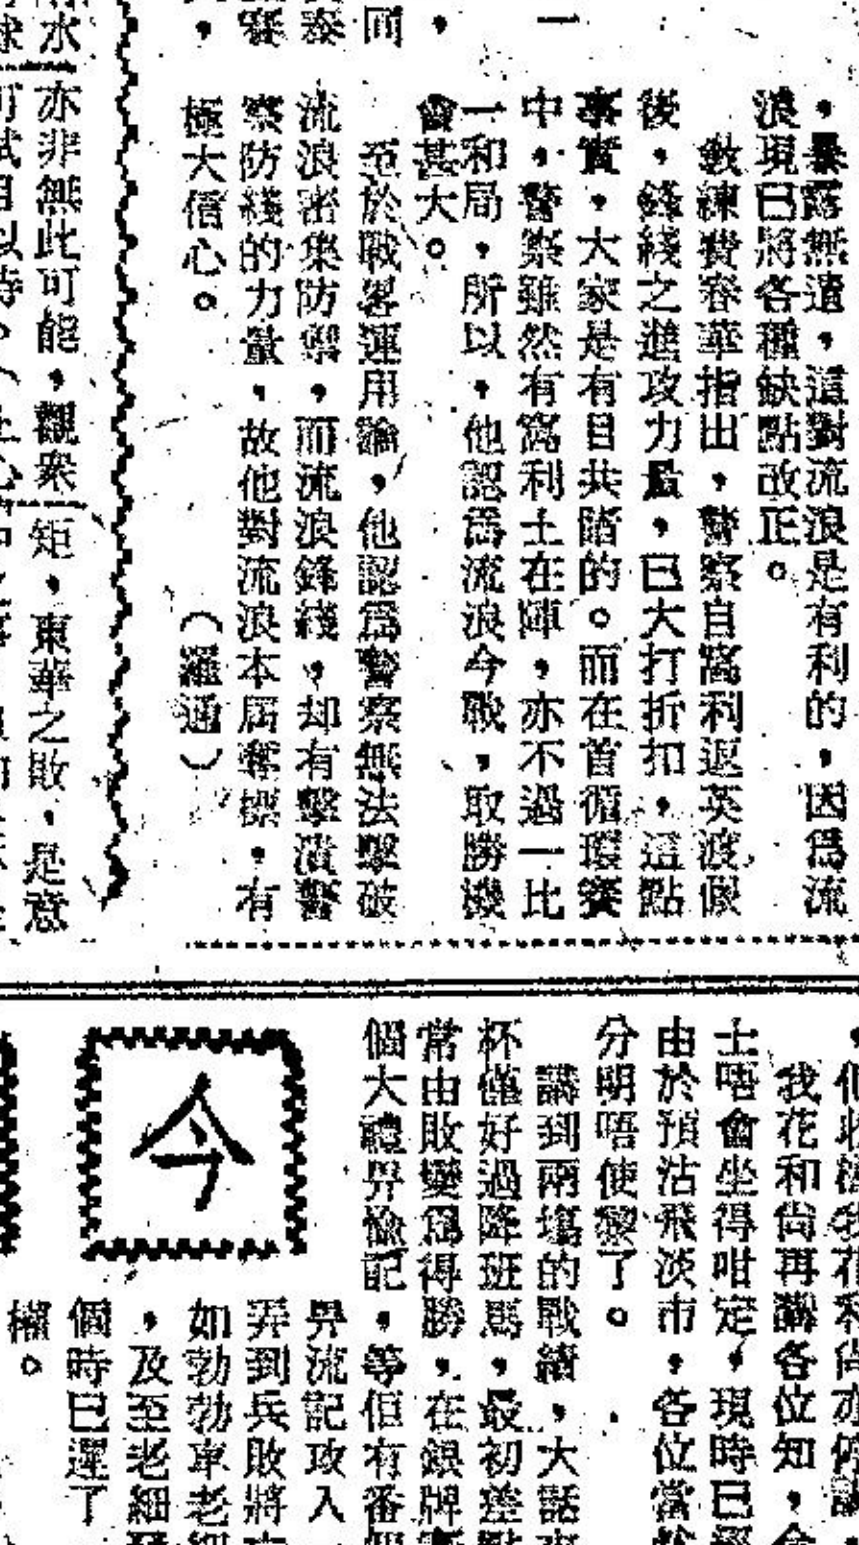 一
，暴露無遺，這對流浪是有利的，因爲流
浪現已將各種缺點改正。
敎練費春華指出，警察自窩利返英渡假
後，鋒綫之進攻力量，已大打折扣，這點
事實，大家是有目共睹的。而在首循環賽
中，警察雖然有窩利士在陣，亦不過一比
一和局，所以，他認爲流浪今戰，取勝機
會甚大。
至於戰畧運用論，他認爲警察無法擊破
流浪密集防禦，而流浪鋒綫，却有擊潰警
察防綫的力量，故他對流浪本屆奪標，有
極大信心。
（羅通）
水
亦非無此可能，觀衆
矩，東華之敗，是意
我花和尚再講各位知，
士唔會坐得咁定，現時已
由於預沽飛淡市，各位當
分明唔使黎了。
講到兩塲的戰績，大話
杯僅好過降班馬，最初差
常由敗變爲得勝，在銀牌
個大禮畀愉記，等佢有番
畀流記攻入
弄到兵敗將
如勃勃車老細
，及至老細
個時已遲了
權。
今